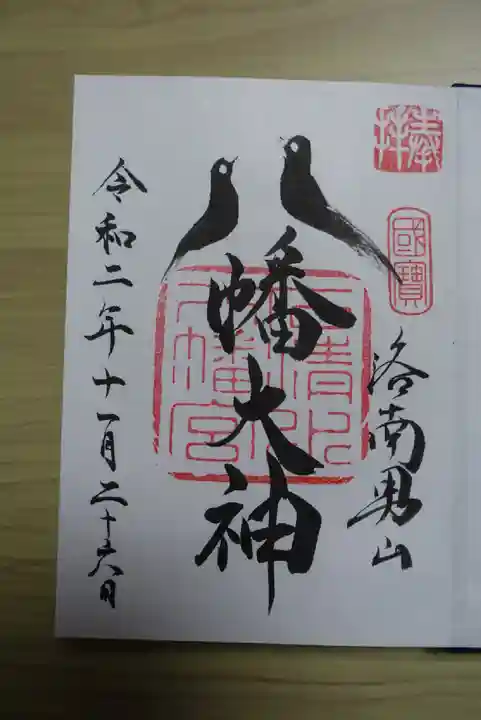 奉拝
國寶
洛南男山
八幡大神
石清水八幡宮
令和二年十一月二十六日